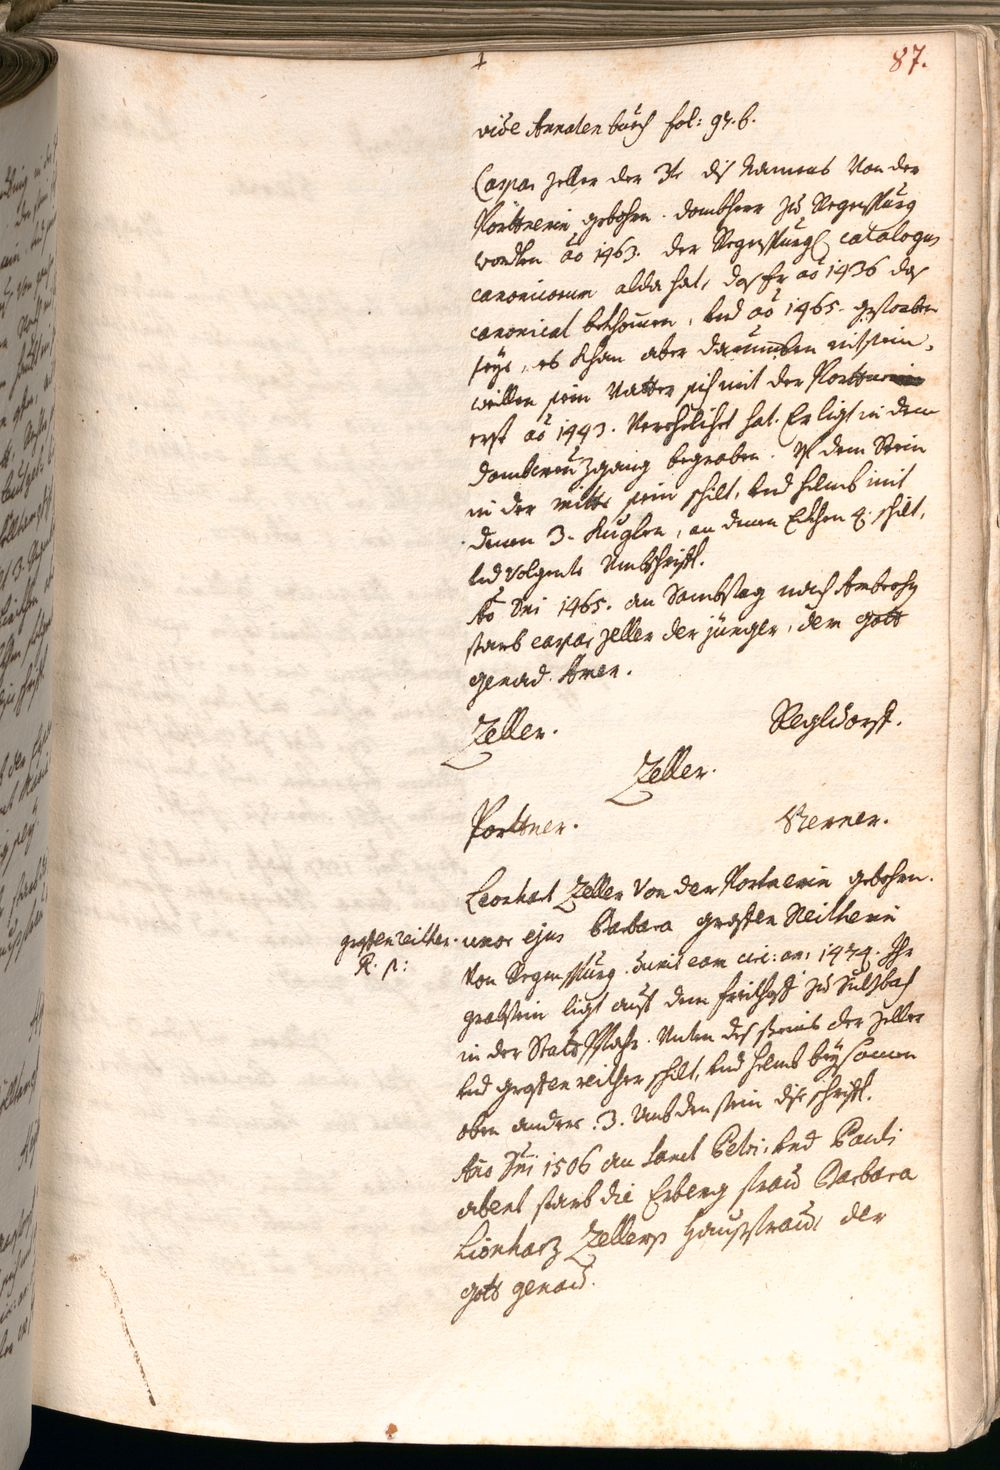 87.
vide Annalenbuch fol: 97. b.
Caspar Zeller der 3te diß Namens von der
Porttnerin gebohrn. dombherr zu Regenspurg
worden aõ 1463. der Regenspurg: catalogus
canonicorum alda hat, daß Er aõ 1436 daß
canonicat bekhommen, und aõ 1465. gestorben
seye, es khan aber darumben nit sein,
weillen sein Vatter sich mit der Porttnerin
erst aõ 1443. verehelichet hat. Er ligt in dem
dombcreuzgang begraben. Uf dem Stein
in der mitte sein schilt, und helmb mit
denen 3. Kuglen, an denen Ekhen 4. schilt,
und volgente Umbschrifft.
Aõ Dni 1465. an Sambstag nach Ambrosy
starb caspar Zeller der jünger, dem gott
genad. Amen.
Zeller. Regldorff.
Zeller.
Porttner. Sterner.
Leonhart Zeller von der Portnerin gebohrn.
uxor ejus Barbara grosten Reitherin
grostenreither.
R. p:
von Regenspurg. duxit eam circ: an: 1474. Ihr
grabstein ligt auff dem freithoff zu Sulzbach
in der Statt Pfahr. Unten deß steins der Zeller
und grostenreither schilt, und helmb beysamen
oben andere .3. Umb den stein dise schrifft.
Año Dni 1506 an sanct Petri, und Pauli
abent starb die Erberg fraw Barbara
Lienharz Zellers Haußfraw, der
gott genad.